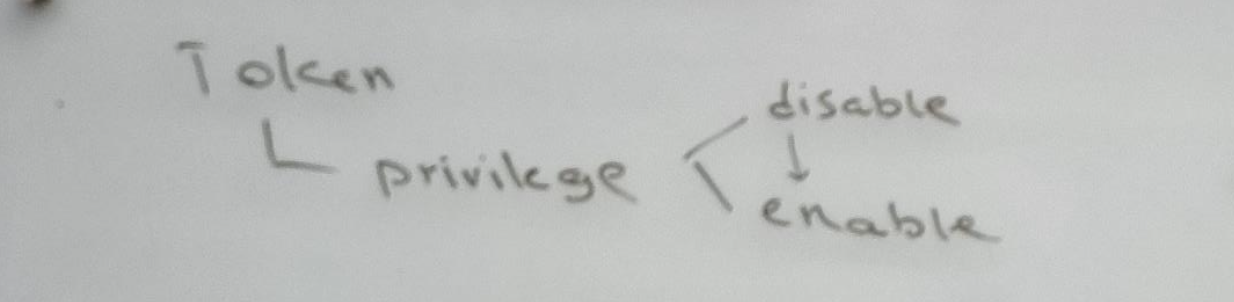 Token
privilege
disable
↓
enable